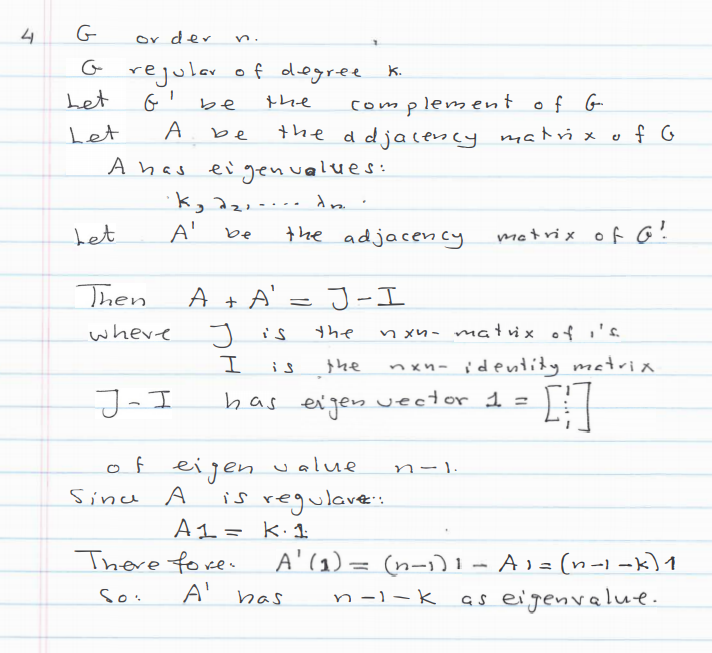 4 G order n.
G regular of degree k.
Let G' be the complement of G.
Let A be the adjacency matrix of G
A has eigenvalues:
k, λ2, .... λn.
Let A' be the adjacency matrix of G'.
Then A + A' = J-I
where J is the nxn- matrix of 1's.
I is the nxn- identity matrix
J-I has eigenvector 1 = [1 ⋮ 1]
of eigenvalue n-1.
Since A is regular:
A1 = k.1
Therefore. A'(1) = (n-1)1 - A1 = (n-1-k)1
So: A' has n-1-k as eigenvalue.